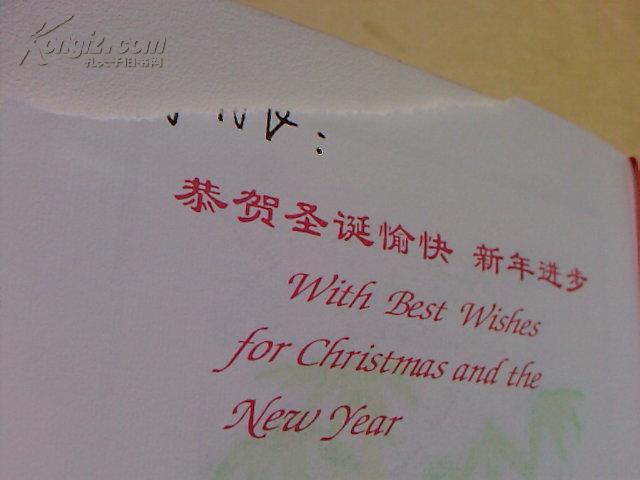 Kongfz.com
孔夫子旧书网
恭贺圣诞愉快 新年进步
With Best Wishes
for Christmas and the
New Year